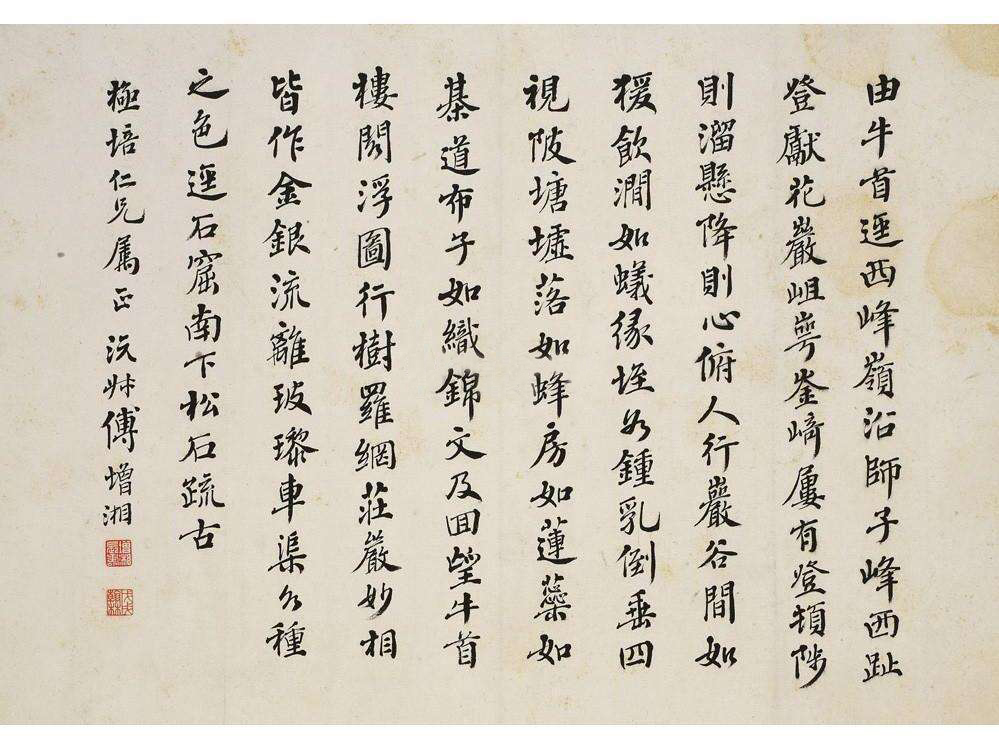 由牛首逕西峰嶺沿師子峰西趾
登獻花巖岨崿崟﨑屢有登頓陟
則溜懸降則心俯人行巖谷間如
猨飲澗如蟻緣垤如鍾乳倒垂四
視陂塘墟落如蜂房如蓮蘂如
棊道布子如織錦文及囬望牛首
樓閣浮圖行樹羅網莊嚴妙相
皆作金銀流離玻瓈車渠各種
之色逕石窟南下松石疏古
極培仁兄属正 沅叔傅增湘